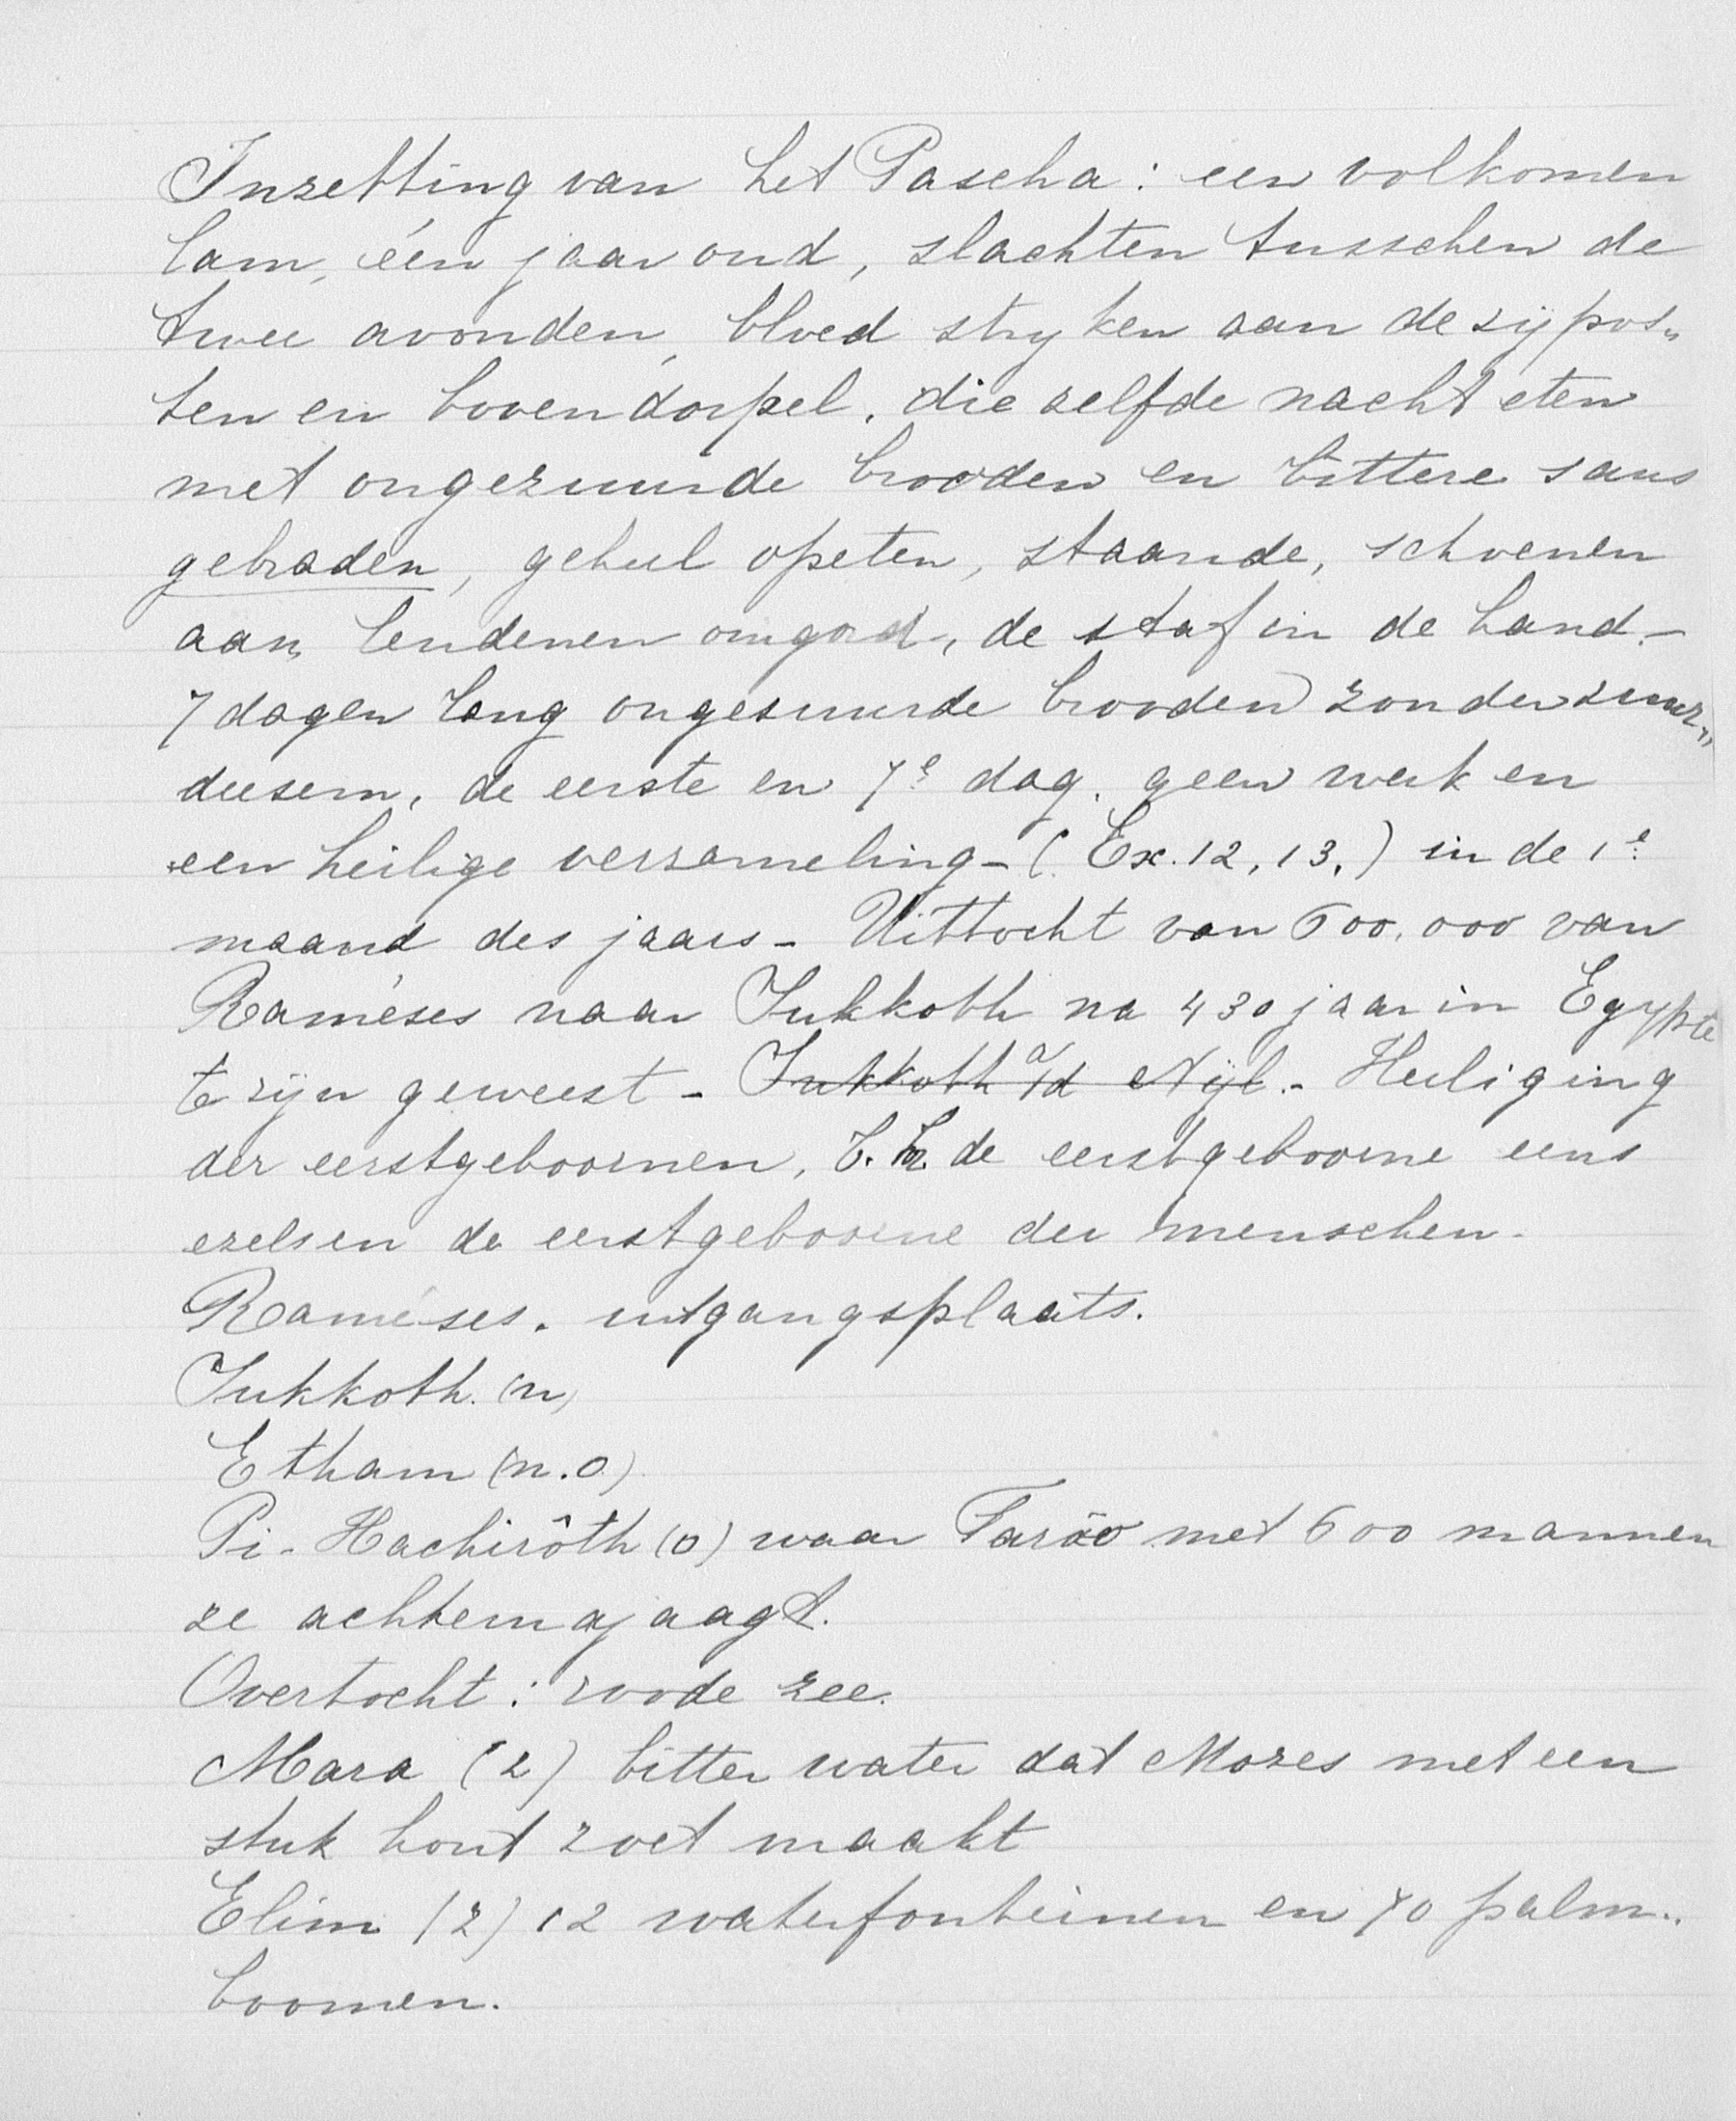 Inzetting van het Pascha: een volkomen
lam, één jaar oud, slachten tusschen de
twee avonden, bloed stryken aan de zijpos„
ten en bovendorpel. die zelfde nacht eten
met ongezuurde brooden en bittere saus
gebraden, geheel opeten, staande, schoenen
aan, lendenen omgord, de staf in de hand. -
7 dagen lang ongezuurde brooden zonder zuur„
deesem, de eerste en 7e dag. geen werk en
een heilige verzameling - (Ex. 12, 13.) in de 1e
maand des jaars - Uittocht van 600.000 van
Raméses naar Sukkoth na 430 jaar in Egypte
te zijn geweest - Sukkoth a/d Nijl. - Heiliging
der eerstgeboornen, de eerstgeboorne eens
ezels en de eerstgeboorne der menschen.
Raméses. uitgangsplaats.
Sukkoth. (n)
Etham (n.o)
Pi-Hachirôth (o) waar Farao met 600 mannen
ze achterna jaagt.
Overtocht: roode zee.
Mara (z) bitter water dat Mozes met een
stuk hout zoet maakt
Elim (z) 12 waterfonteinen en 70 palm„
boomen.